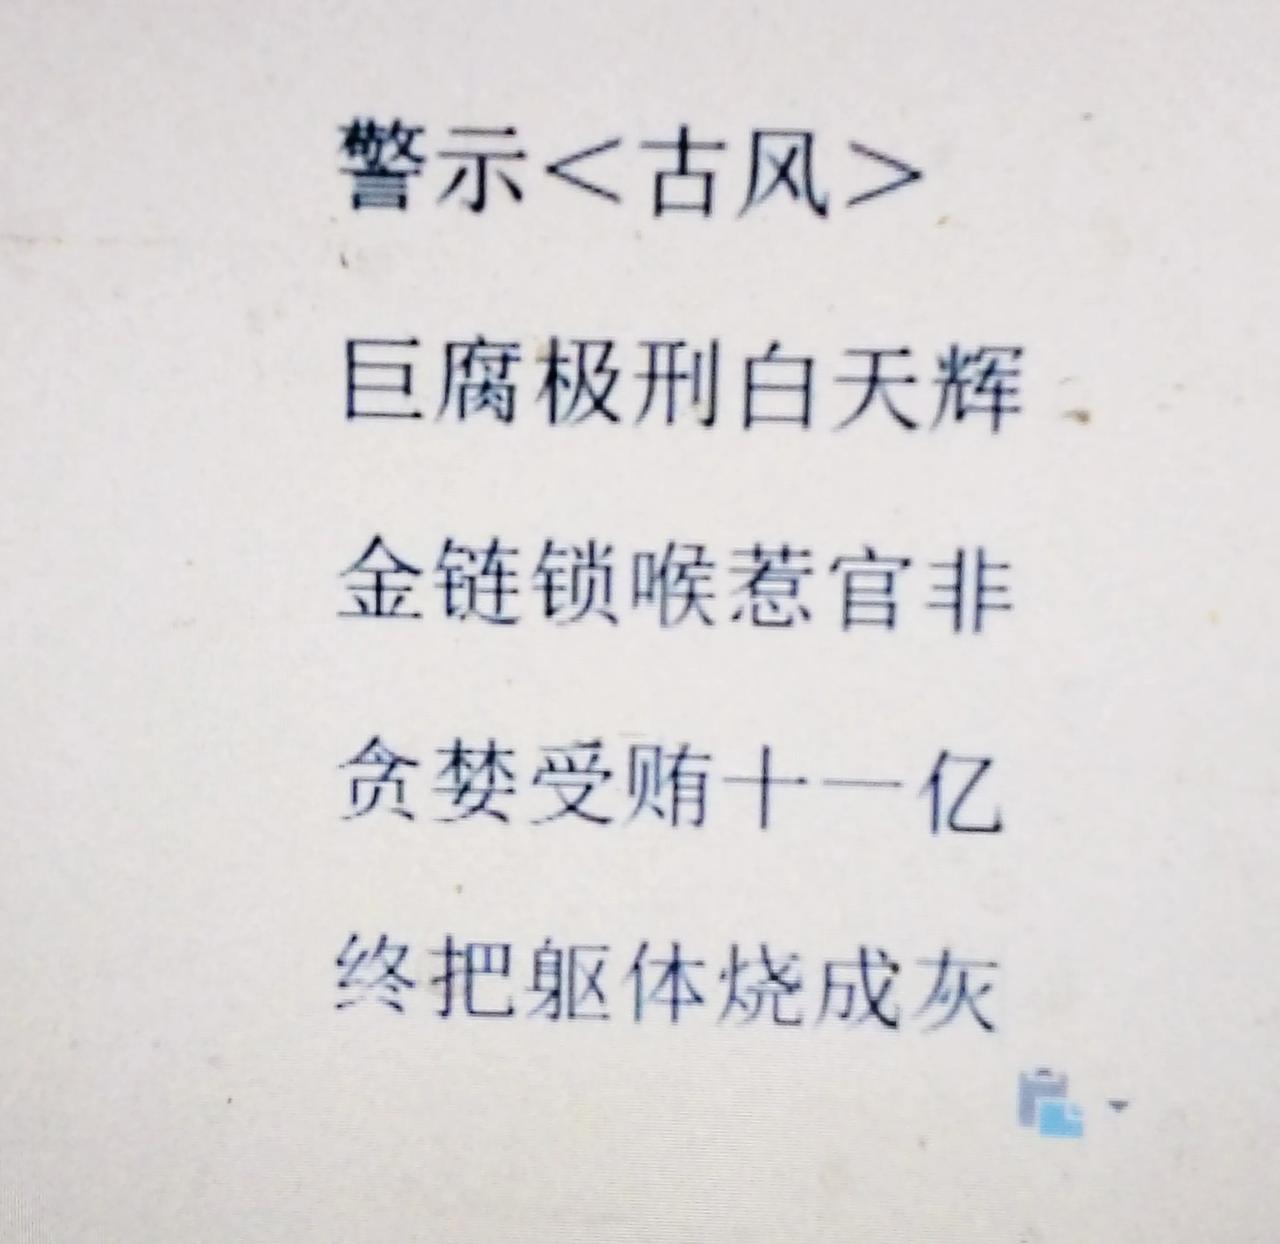 警示<古风>
巨腐极刑白天辉
金链锁喉惹官非
贪婪受贿十一亿
终把躯体烧成灰